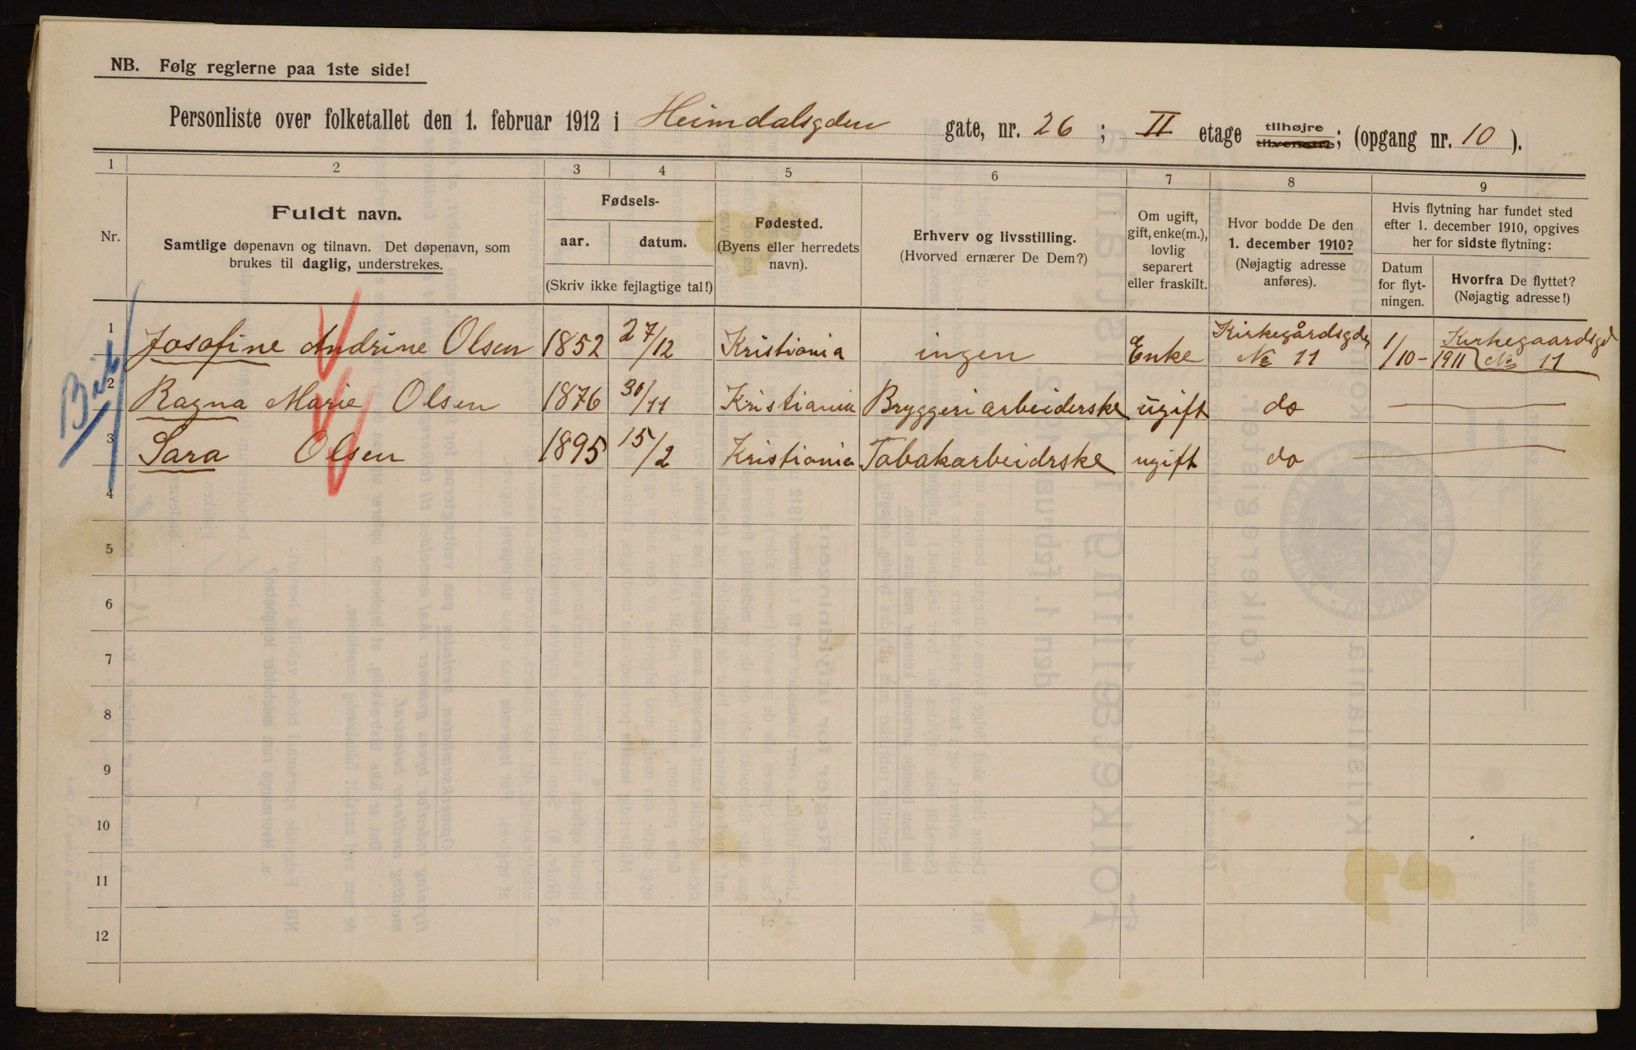 NB. Følg reglerne paa 1ste side!
Personliste over folketallet den 1. februar 1912 i Heimdalsgden gate, nr. 26 ; II etage tilhøjre tilvenstre; (opgang nr. 10 ).
1 2 3 4 5 6 7 8 9
Nr.
Fuldt navn.
Samtlige døpenavn og tilnavn. Det døpenavn, som
brukes til daglig, understrekes.
Fødsels-
aar. datum.
(Skriv ikke fejlagtige tal!)
Fødested.
(Byens eller herredets
navn).
Erhverv og livsstilling.
(Hvorved ernærer De Dem?)
Om ugift,
gift, enke(m.),
lovlig
separert
eller fraskilt.
Hvor bodde De den
1. december 1910?
(Nøjagtig adresse
anføres).
Hvis flytning har fundet sted
efter 1. december 1910, opgives
her for sidste flytning:
Datum
for flyt-
ningen.
Hvorfra De flyttet?
(Nøjagtig adresse!)
1 Josefine Andrine Olsen 1852 27/12 Kristiania ingen Enke Kirkegårdsgden № 11 1/10 - 1911 Kirkegaardsgd № 11
2 Ragna Marie Olsen 1876 30/11 Kristiania Bryggeriarbeiderske ugift do
3 Sara Olsen 1895 15/2 Kristiania Tobakarbeidrske ugift do
4
5
6
7
8
9
10
11
12